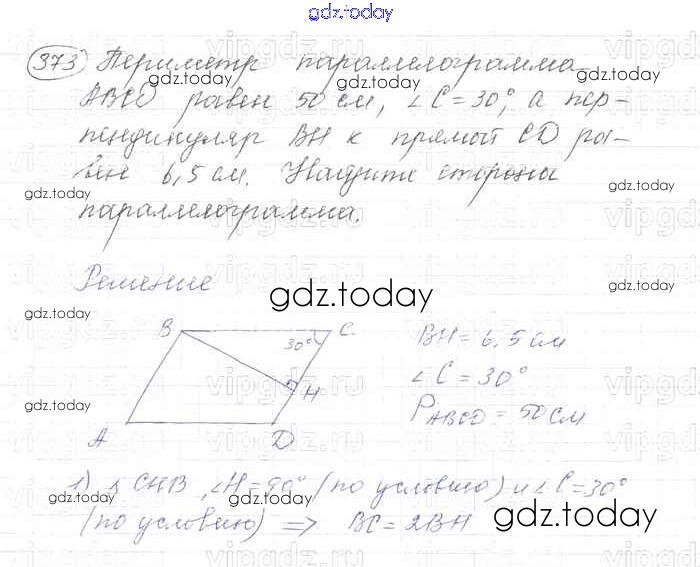 gdz.today
373 Периметр параллелограмма
ABCD равен 50 см, ∠C = 30°, а пер-
пендикуляр BH к прямой CD ра-
вен 6,5 см. Найдите стороны
параллелограмма.
Решение
B C
30°
H
A D
BH = 6,5 см
∠C = 30°
P ABCD = 50 см
1) Δ CHB, ∠H = 90° (по условию) и ∠C = 30°
(по условию) => BC = 2BH
gdz.today
gdz.today
gdz.today
gdz.today
gdz.today
gdz.today
gdz.today
gdz.today
gdz.today
gdz.today